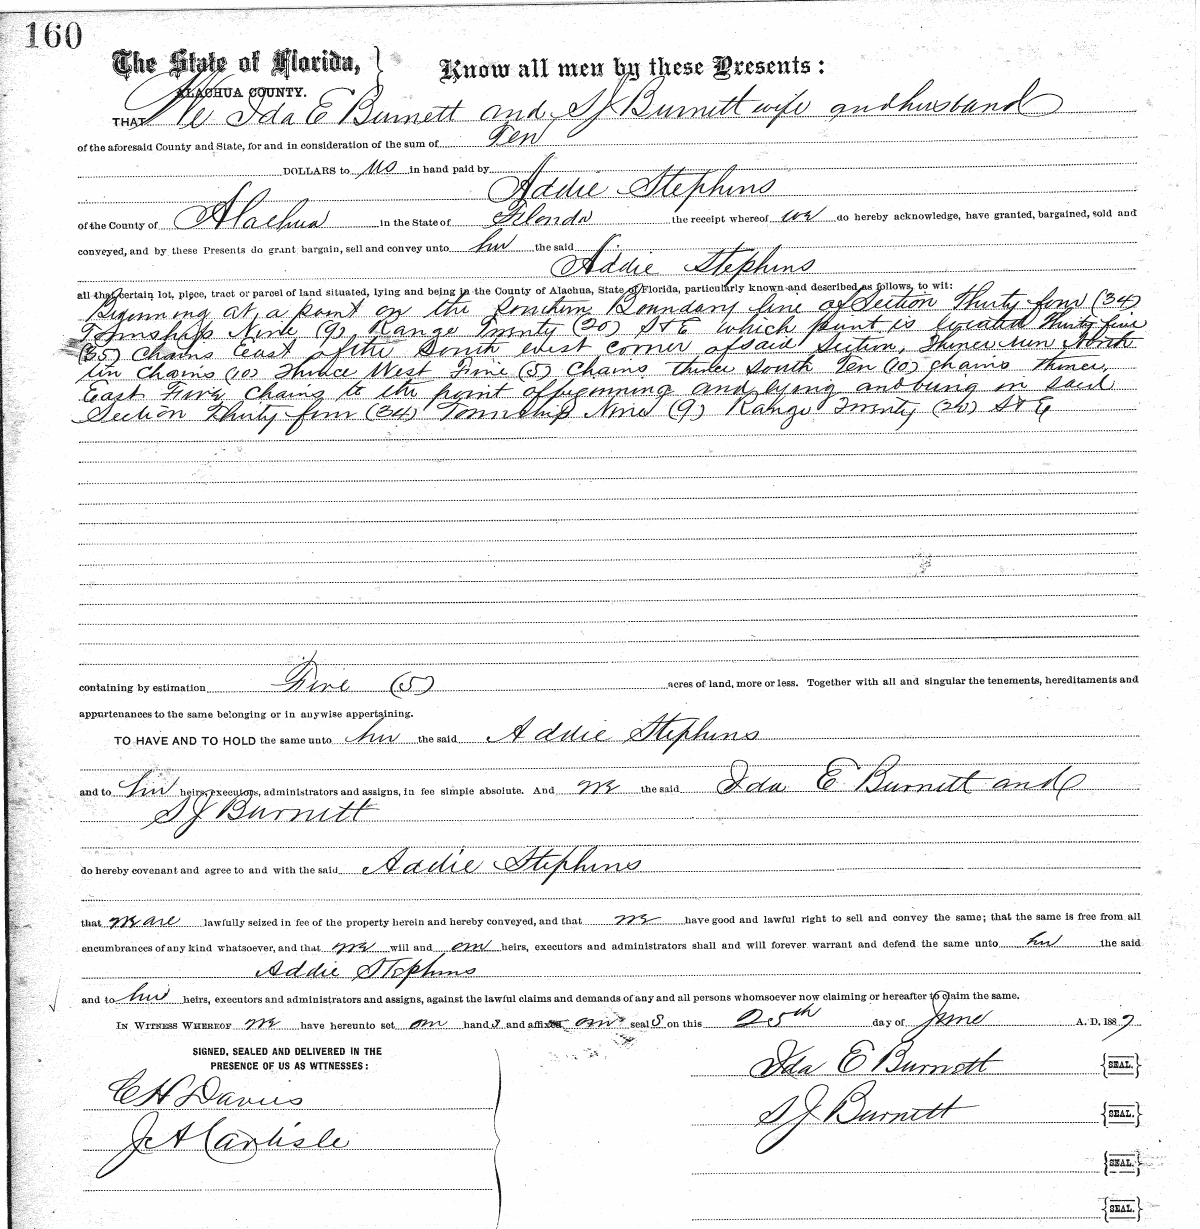 160
The State of Florida, } Know all men by these Presents:
ALACHUA COUNTY.
THAT We Ida E Burnett and S J Burnett wife and husband
of the aforesaid County and State, for and in consideration of the sum of Ten
DOLLARS to us in hand paid by
Addie Stephins
of the County of Alachua in the State of Florida the receipt whereof we do hereby acknowledge, have granted, bargained, sold and
conveyed, and by these Presents do grant bargain, sell and convey unto her the said
Addie Stephins
all that certain lot, piece, tract or parcel of land situated, lying and being in the County of Alachua, State of Florida, particularly known and described as follows, to wit:
Beginning at a point on the Southern Boundary line of Section Thirty four (34)
Township Nine (9) Range Twenty (20) S & E which point is located Thirty five
(35) Chains East of the South west corner of said Section, Thence run North
Ten Chains (10) Thence West Five (5) Chains thence South Ten (10) chains thence
East Five Chains to the point of beginning and lying and being in said
Section Thirty four (34) Township Nine (9) Range Twenty (20) S & E
containing by estimation Five (5) acres of land, more or less. Together with all and singular the tenements, hereditaments and
appurtenances to the same belonging or in anywise appertaining.
TO HAVE AND TO HOLD the same unto her the said Addie Stephins
and to her heirs, executors, administrators and assigns, in fee simple absolute. And we the said Ida E Burnett and
S J Burnett
do hereby covenant and agree to and with the said Addie Stephins
that we are lawfully seized in fee of the property herein and hereby conveyed, and that we have good and lawful right to sell and convey the same; that the same is free from all
encumbrances of any kind whatsoever, and that we will and our heirs, executors and administrators shall and will forever warrant and defend the same unto her the said
Addie Stephins
and to her heirs, executors and administrators and assigns, against the lawful claims and demands of any and all persons whomsoever now claiming or hereafter to claim the same.
IN WITNESS WHEREOF we have hereunto set our hand s and affixed our seal s on this 25th day of June A. D. 1887
SIGNED, SEALED AND DELIVERED IN THE
PRESENCE OF US AS WITNESSES:
Ida E Burnett {SEAL.}
C H Davis
S J Burnett {SEAL.}
J A Carlisle
{SEAL.}
{SEAL.}